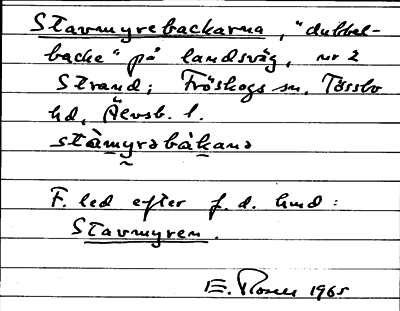 Stavmyrebackarna, "dubbel-
backe" på landsväg, nr 2
Strand; Fröskogs sn, Tössbo
hd, Älvsb. l.
stàmyrəbàkanə
F. led efter f. d.
Stavmyren.
E. 1965